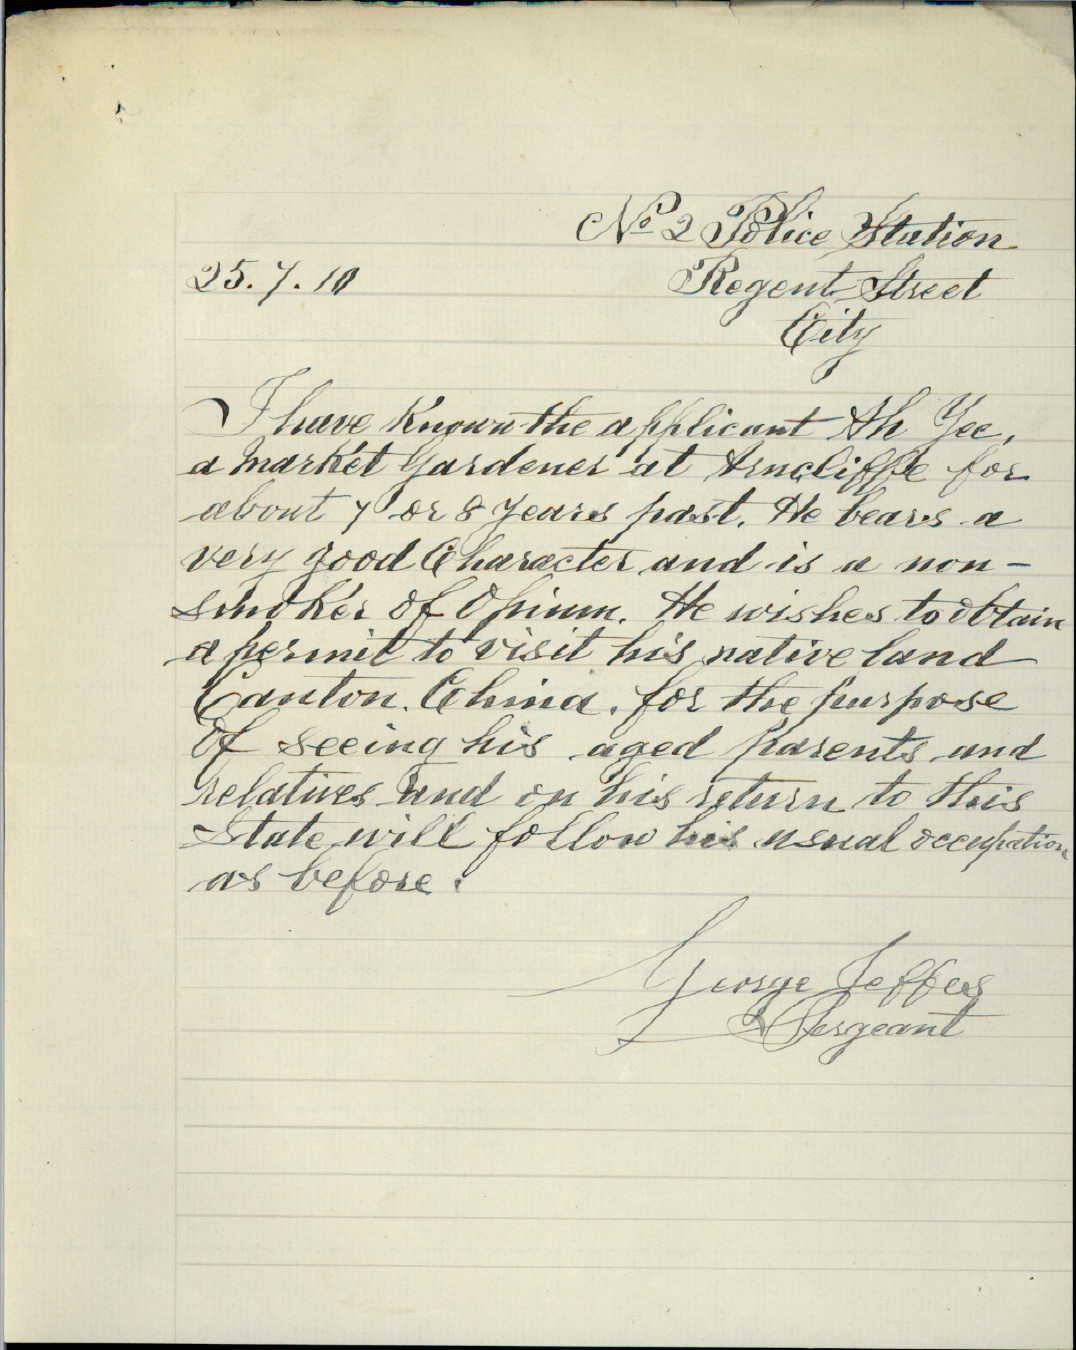 No 2 Police Station
25.7.10 Regent Street
City
I have Known the applicant Ah Yee,
a Market Gardener at Arncliffe for
about 7 or 8 years past. He bears a
very good Character and is a non-
smoker of Opium. He wishes to obtain
a permit to visit his native land
Canton. China. for the purpose
of seeing his aged parents and
relatives and on his return to this
State will follow his usual occupation
as before.
George Jeffes
Sergeant